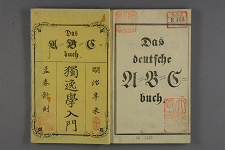 Das
A=B=C
buch.
明治辛未
獨逸學入門
孟春新刻
Das
deutsche
A=B=C=
buch.